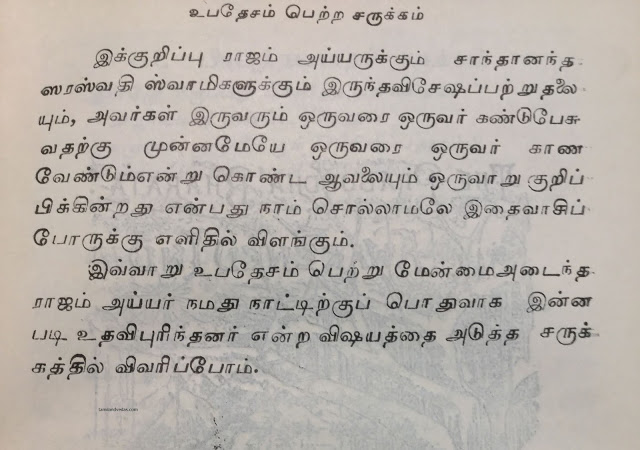 உபதேசம் பெற்ற சருக்கம்
இக்குறிப்பு ராஜம் அய்யருக்கும் சாந்தானந்த
ஸரஸ்வதி ஸ்வாமிகளுக்கும் இருந்தவிசேஷப்பற்றுதலை
யும், அவர்கள் இருவரும் ஒருவரை ஒருவர் கண்டுபேசு
வதற்கு முன்னமேயே ஒருவரை ஒருவர் காண
வேண்டும்என்று கொண்ட ஆவலையும் ஒருவாறு குறிப்
பிக்கின்றது என்பது நாம் சொல்லாமலே இதைவாசிப்
போருக்கு எளிதில் விளங்கும்.
இவ்வாறு உபதேசம் பெற்று மேன்மைஅடைந்த
ராஜம் அய்யர் நமது நாட்டிற்குப் பொதுவாக இன்ன
படி உதவிபுரிந்தனர் என்ற விஷயத்தை அடுத்த சருக்
கத்தில் விவரிப்போம்.
tamilandvedas.com